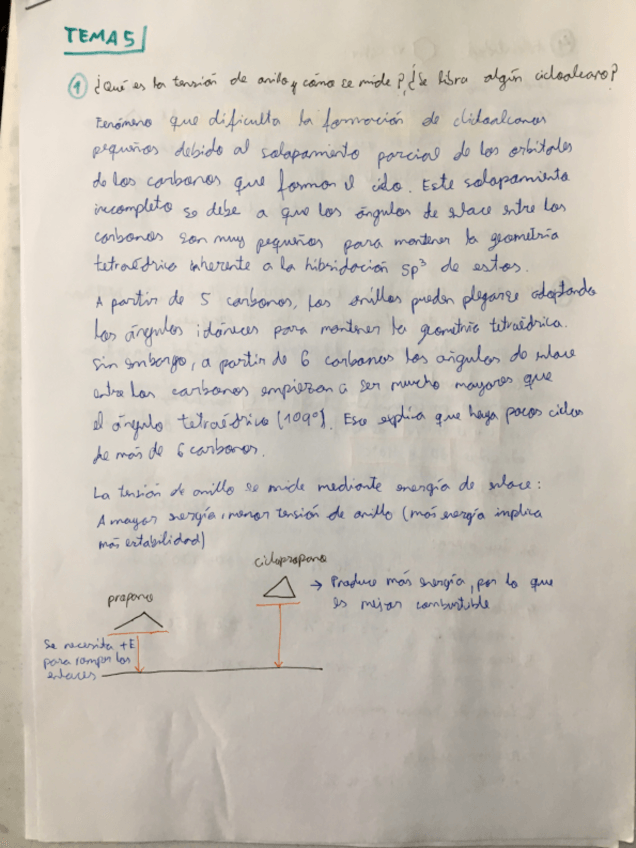 TEMA 5
① ¿Qué es la tensión de anillo y cómo se mide?¿Se libra algún cicloalcano?
Fenómeno que dificulta la formación de cicloalcanos
pequeños debido al solapamiento parcial de los orbitales
de los carbonos que forman el ciclo. Este solapamiento
incompleto se debe a que los ángulos de enlace entre los
carbonos son muy pequeños para mantener la geometría
tetraédrica inherente a la hibridación sp³ de estos.
A partir de 5 carbonos, los anillos pueden plegarse adoptando
los ángulos idóneos para mantener la geometría tetraédrica.
Sin embargo, a partir de 6 carbonos los ángulos de enlace
entre los carbonos empiezan a ser mucho mayores que
el ángulo tetraédrico (109º). Eso explica que haya pocos ciclos
de más de 6 carbonos.
La tensión de anillo se mide mediante energía de enlace:
A mayor energía, menor tensión de anillo (más energía implica
más estabilidad)
ciclopropano
propano
→ Produce más energía, por lo que
es mejor combustible
Se necesita +E
para romper los
enlaces